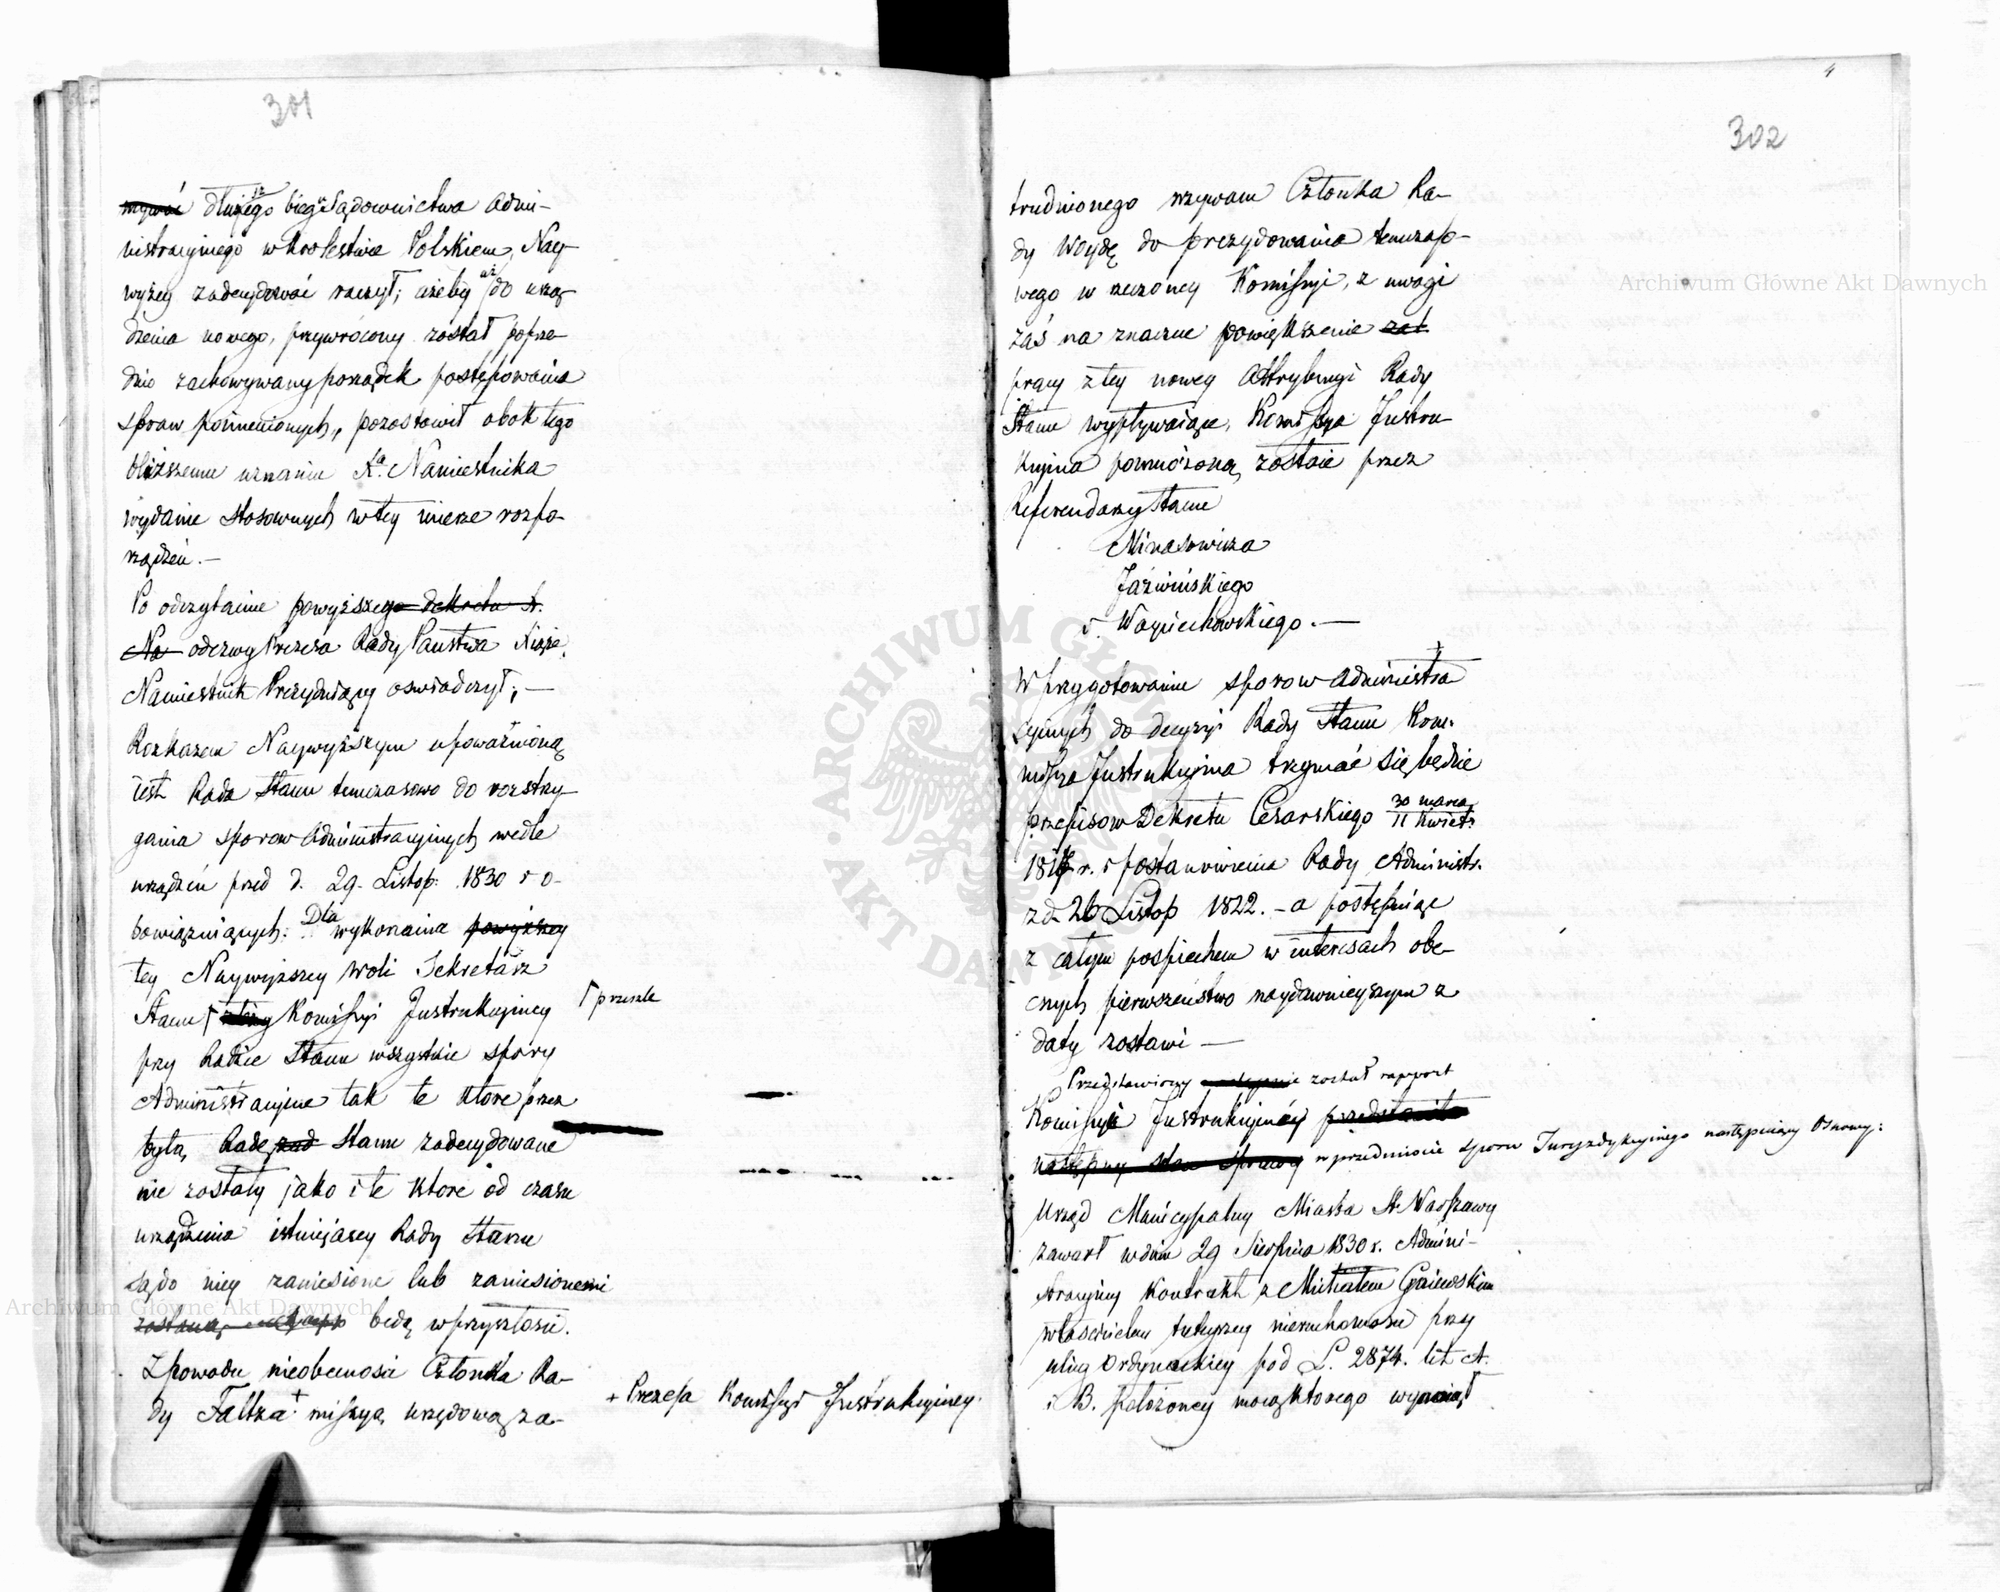 301
dłuższego biegu Sądownictwa Admi-
nistracyjnego w Królestwie Polskiem, Nay-
wyżey zadecydować raczył; ażeby aż do urzą-
dzenia nowego, przywrócony został poprze-
dnio zachowywany porządek postępowania
spraw pomienionych, pozostawił obok tego
bliższemu uznaniu Xa. Namiestnika
wydanie stosownych w tey mierze rozpo-
rządzeń. —
Po odczytaniu powyższego dekretu N.
Na odezwy Prezesa Rady Państwa Xiąże
Namiestnik Prezyduiący oświadczył; —
Rozkazem Naywyższym upoważnioną
iest Rada Stanu tymczasowo do rozstrzy-
gania sporow Administracyjnych wedle
urządzeń przed d. 29. Listop. 1830 r o-
bowiązuiących. Dla wykonania powyższey
tey Naywyższey woli Sekretarz
Stanu Kommissyi Instrukcyiney
┌ przeszle
przy Radzie Stanu wszystkie spory
Administracyine tak te ktore przez
byłą Radę Stanu zadecydowane
nie zostały jako i te ktore od czasu
urządzenia istniejącey Rady Stanu
są do niey zaniesione lub zaniesionemi
zostaną będą w przyszłości.
Z powodu nieobecności Członka Ra-
dy Faltza + missyą urzędową za-
+ Prezesa Kommissyi Instrukcyiney.
4
302
trudnionego wzywam Członka Ra-
dy Woydę do prezydowania temczaso-
wego w rzeczoney Komissyi, z uwagi
zaś na znaczne powiększenie zat
pracy z tey nowey Attrybucyi Rady
Stanu wypływaiące, Komissya Instru-
kcyina pomnożoną zostaie przez
Referendarzy Stanu
Minasowicza
Jaźwińskiego
i Woyciechowskiego. —
W przygotowaniu sporow administra
cyinych do decyzyi Rady Stanu Kom-
missya Instrukcyina trzymać się będzie
przepisow Dekretu Cesarskiego 30 marca
11 kwiet:
r. i postanowienia Rady Administr.
z d. 26 Listop 1822. – a postępuiąc
z całym pospiechem w interesach obe-
cnych pierwszeństwo naydawnieyszym z
daty zostawi —
Przedstawiony został rapport
Komissyi Instrukcyiney przedstawiła
następny stan sprawy w przedmiocie sporu Juryzdykcyinego następuiący Osnowy:
Urząd Municypalny Miasta St. Warszawy
zawarł w dniu 29 Sierpnia 1830 r. Admini-
stracyiny Kontrakt z Michałem Gaiewskim
właścicielem tuteyszey nieruchomości przy
ulicy Ordynackiey pod L. 2874. lit A.
i B. położoney mocą ktorego wynaiął
Archiwum Główne Akt Dawnych
Archiwum Główne Akt Dawnych
ARCHIWUM GŁÓWNE AKT DAWNYCH